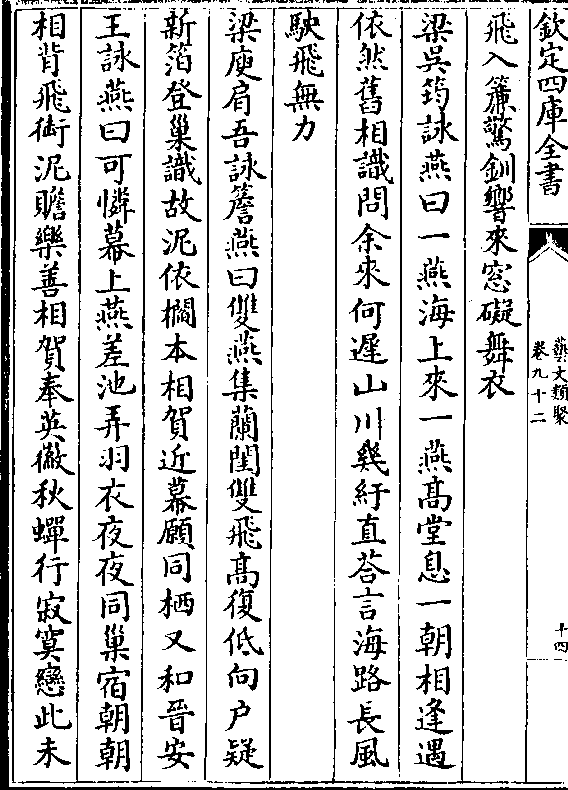 欽定四庫全書
藝文類聚
卷九十二
十四
飛入簾驚釧響來窓礙舞衣
梁吳筠詠燕曰一燕海上來一燕髙堂息一朝相逢遇
依然舊相識問余來何遲山川幾紆直荅言海路長風
駛飛無力
梁庾肩吾詠簷燕曰雙燕集蘭閨雙飛髙復低向户疑
新箔登巢識故泥依櫩本相賀近幕願同栖又和晉安
王詠燕曰可憐幕上燕差池弄羽衣夜夜同巢宿朝朝
相背飛銜泥瞻樂善相賀奉英徽秋蟬行寂寞戀此未